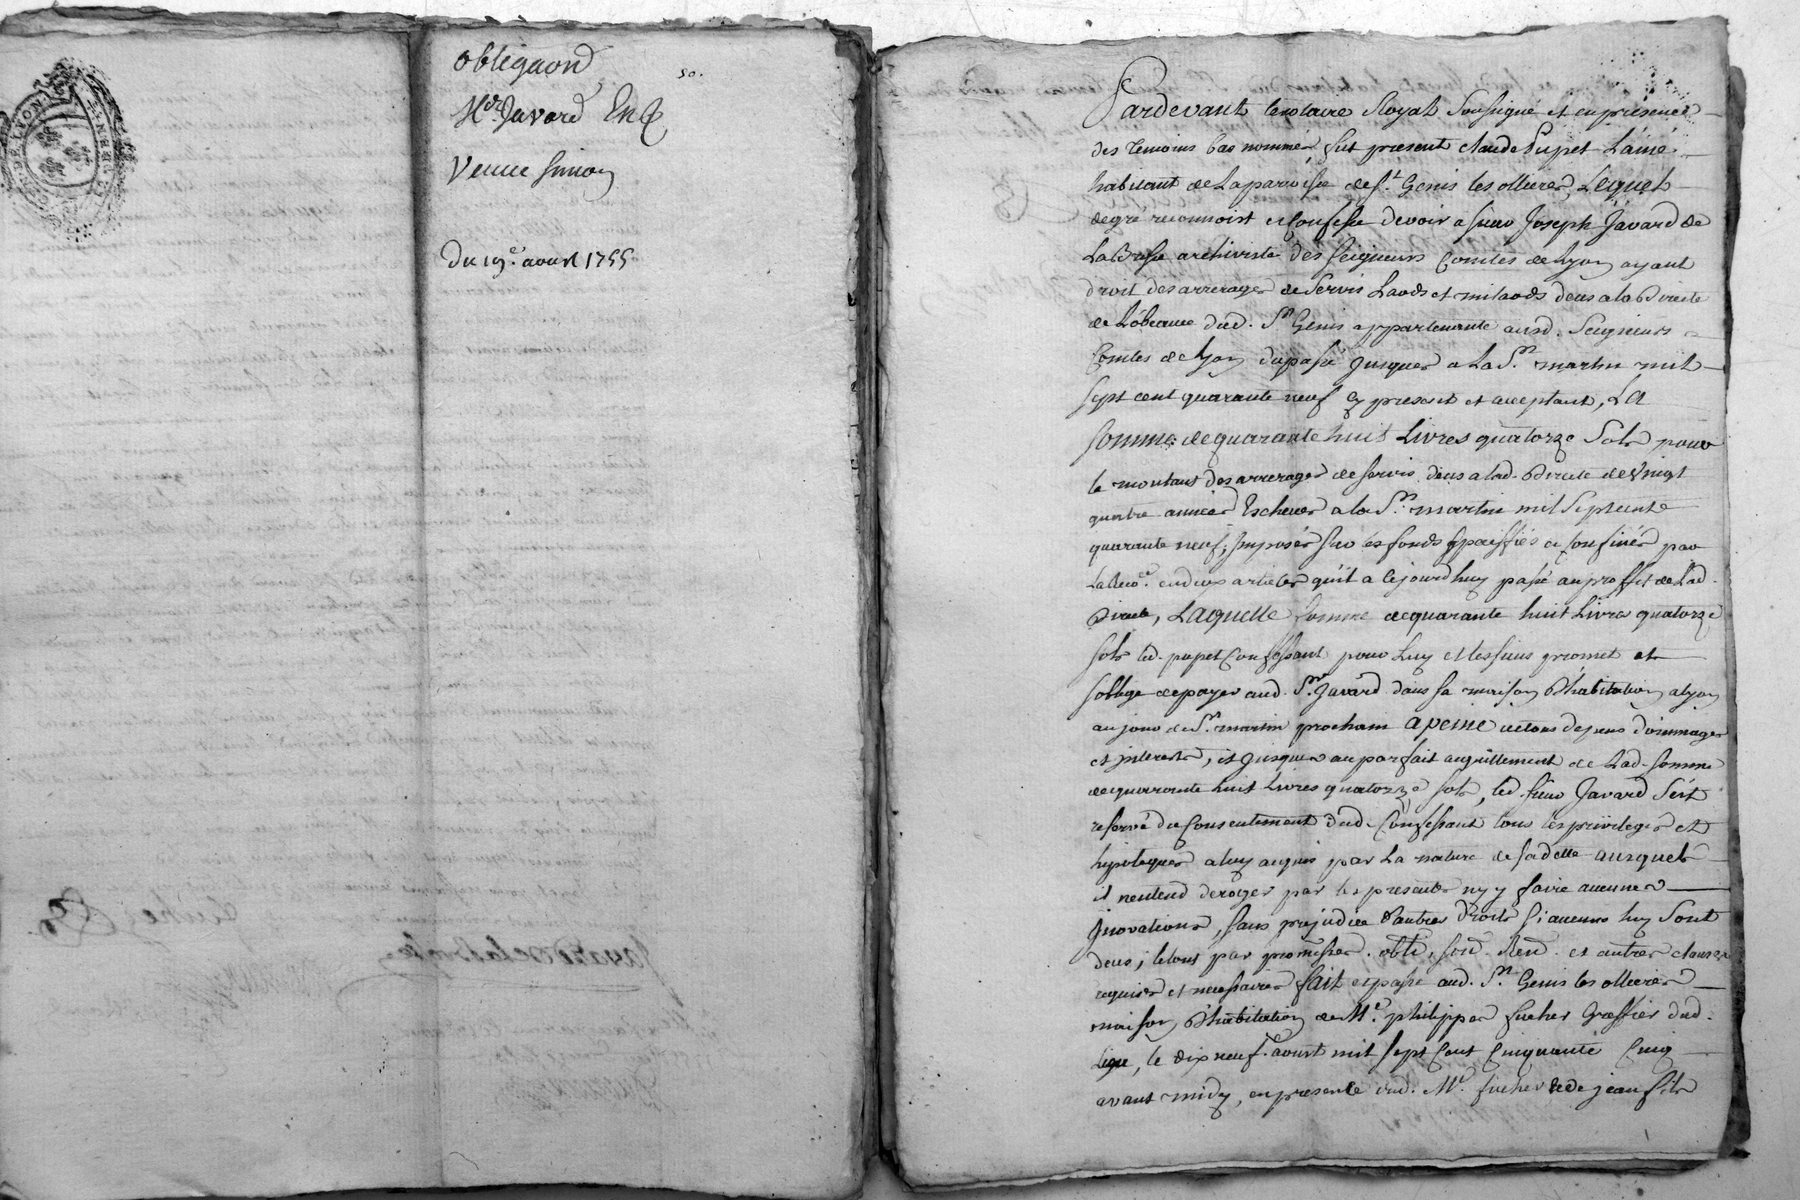 obligaon
50.
Mr. Javard
Veuve Simon
Du 19e. avril 1755
Pardevant le notaire Royal Soussigné et en presence
des temoins bas nommés fut present claude Pupet L'ainé
habitant de la parroisse de St. Genis les ollieres, Lequel
de gré reconnoist et confesse devoir a sieur Joseph Javard de
La Brosse archiviste des seigneurs Comtes de Lyon ayant
droit des arrerages de servis Laods et milaods deus a la Directe
de L'obeance dud. St. Genis appartenante ausd. Seigneurs
Comtes de Lyon du passé jusques a La St. martin mil
sept cent quarante neuf cy present et acceptant, La
somme de quarante huit Livres quatorze Sols pour
le montant des arrerages de servis deus a lad. Directe de Vingt
quatre années Escheues a la St. martin mil Sept cent
quarante neuf, imposés sur les fonds spesiffiés et confinés par
La Reco.ce en deux articles qu'il a cejourdhuy passé au proffit de Lad.
Directe, Laquelle somme de quarante huit Livres quatorze
sols led. pupet Confessant pour Luy et les siens promet et
s'oblige de payer aud. Sr. Javard dans sa maison D'habitation a Lyon
au jour de St. martin prochain a peine de tous depens dommages
et interests, et jusques au parfait acquittement de Lad. somme
de quarante huit Livres quatorze sols, led. sieur Javard s'est
reservé du Consentement dud. Confessant tous les privileges et
hipoteques a luy acquis par La nature de sa dette ausquels
il n'entend deroger par les presentes n'y y faire aucunes
jnovations, sans prejudice d'autres droits si aucuns luy sont
deus; le tout par promesses. obl. soud. Rend. et autres clauses
requises et necessaires fait et passé aud. St. Genis les ollieres
maison D'habitation de Me. philippe fucher Greffier dud.
Lieu, le dix neuf. avril mil sept cent cinquante cinq
avant midy, en presence dud. Me. fucher et de jean fils